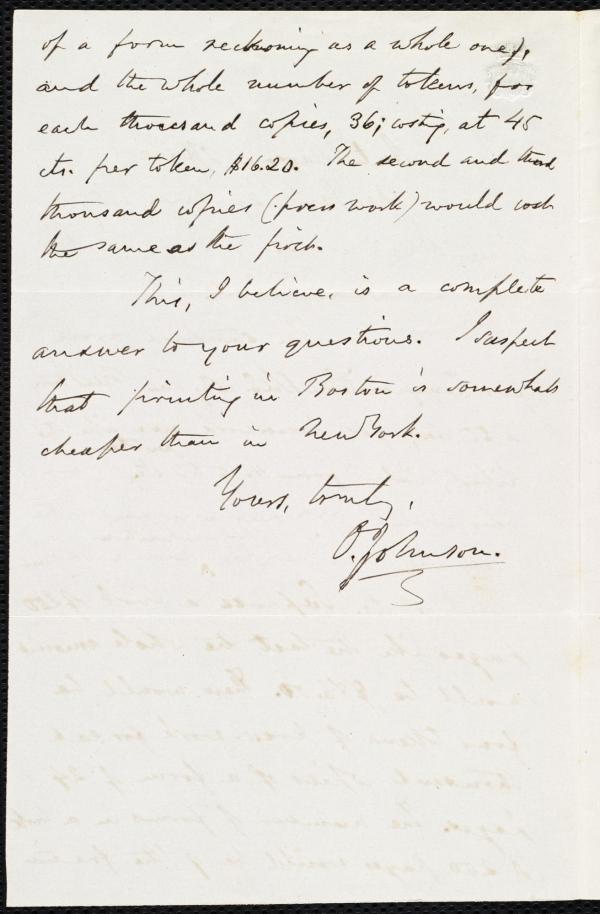 of a form reckoning as a whole one),
and the whole number of tokens, for
each thousand copies, 36; costing, at 45
cts. per token, $16.20. The second and third
thousand copies (press work) would cost
the same as the first.
This, I believe, is a complete
answer to your questions. I suspect
that printing in Boston is somewhat
cheaper than in New York.
Yours, truly,
O. Johnson.